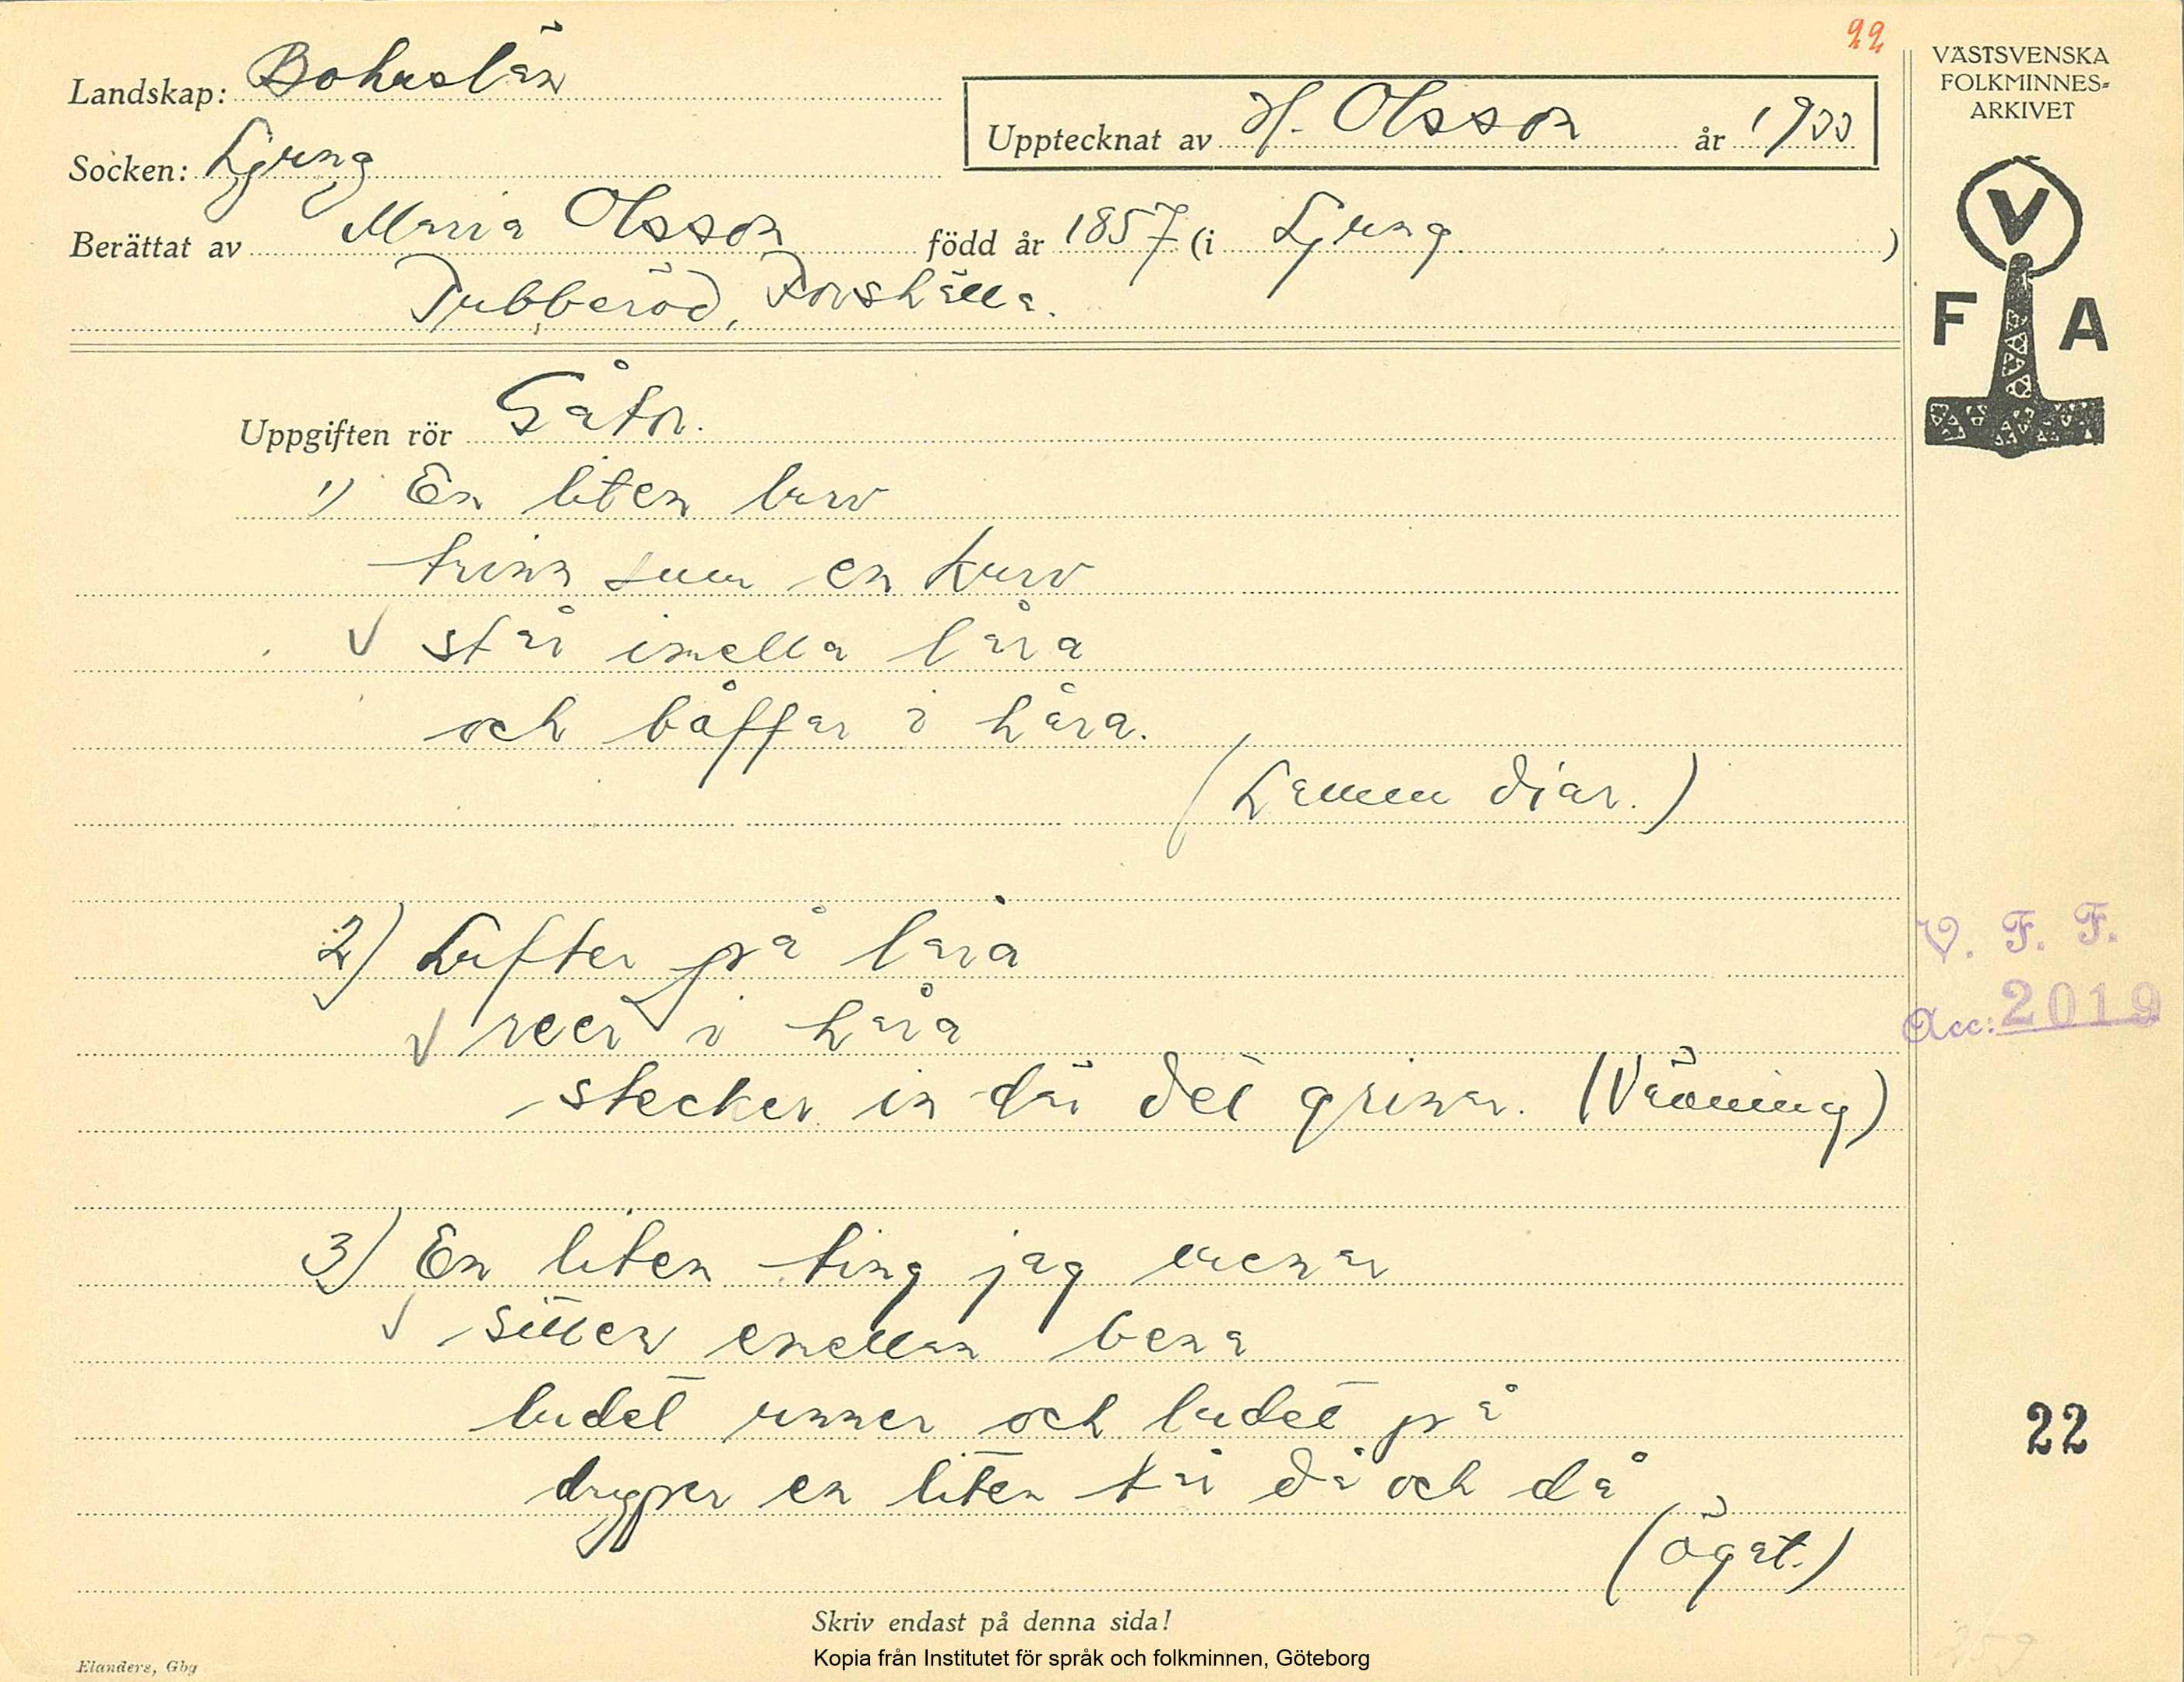 22
VÄSTSVENSKA
FOLKMINNES-
ARKIVET
Landskap: Bohuslän
Upptecknat av H. Olsson år 1933
Socken: Ljung
Berättat av Maria Olsson född år 1857 (i Ljung )
Tubberöd, Forshälla.
V
F A
Uppgiften rör Gåtor.
1) En liten lurv
trinn sum en kurv
står imella låra
och båffar i håra.
( diar.)
2) Lufter på låra
reer i håra
stecker in där det grinar. (Vävning)
V. F. F.
Acc: 2019
3) En liten ting jag menar
sitter emellan bena
ludet unner och ludet på
drypper en liten tår då och då
(ögat.)
22
Skriv endast på denna sida!
Kopia från Institutet för språk och folkminnen, Göteborg
Elanders, Gbg